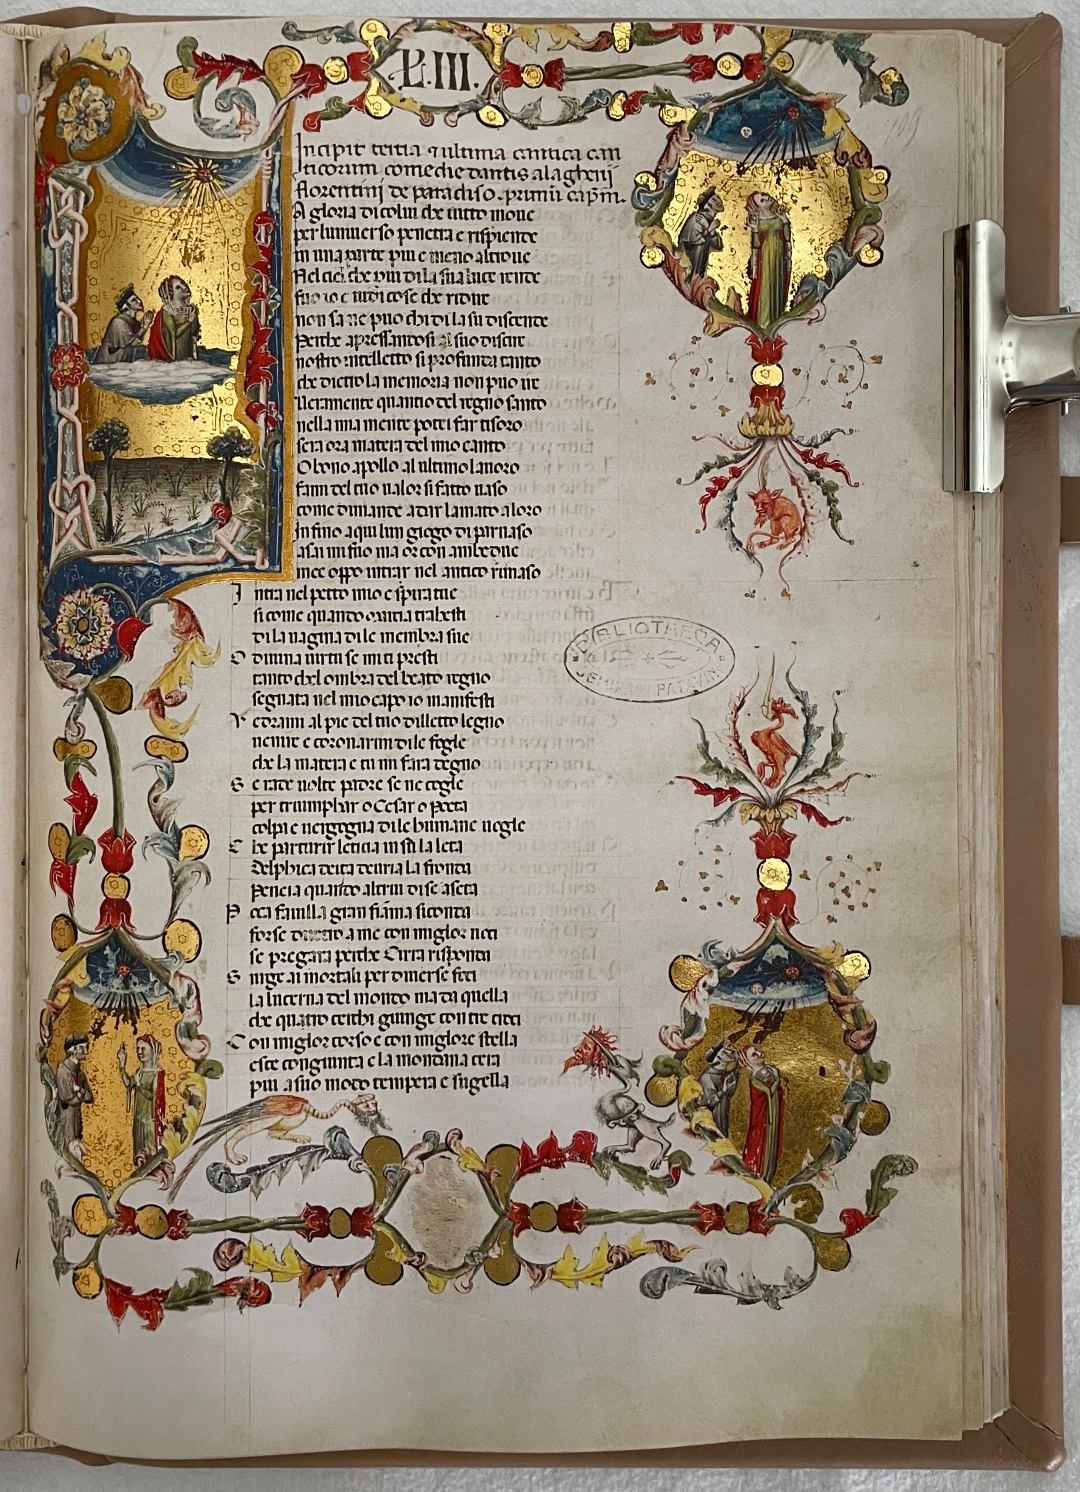 L.III.
Incipit tertia & ultima cantica can
ticorum comedie dantis alagherij
florentinj de paradiso. primū capᷓm.
A gloria di colui che tutto moue
per luniuerso penetra e risplente
in una parte piu e meno altroue
Nel ciel che piu di la sua luce rente
fu io e uidi cose che ridire
non sa ne puo chi di la su discente
Perche apressantosi al suo disire
nostro intelletto si profunda tanto
che dietro la memoria non puo ire
Ueramente quanto del regno santo
nella mia mente potei far tisoro
sera ora matera del mio canto
O bono apollo al ultimo lauoro
fami del tuo ualor si fatto uaso
come dimante a dar lamato aloro
In fino a qui lun giogo di parnaso
asai mi fuo ma or con ambedue
mee oppo intrar nel antico rimaso
Intra nel petto mio e spira tue
si come quanto marsia trahesti
di la uagina di le membra sue
O diuina uirtu se mi ti presti
tanto chel ombra del beato regno
segnata nel mio capo io manifesti
Vedrami al pie del tuo diletto legno
uenire e coronarmi di le fogle
che la matera e tu mi fara degno
Se rade uolte padre se ne cogle
per triumphar o Cesar o Poeta
colpa e uergogna di le humane uogle
Che parturir leticia in su la leta
Delphica deita deuria la fronda
Peneia quando altrui di se aseta
Poca fauilla gran fiāma siconda
forse dietro a me con miglor uoci
se pregara perche Cirra risponda
Surge ai mortali per diuerse foci
la lucerna del mondo ma da quella
che quatro cerchi giunge con tre croci
Con miglor corso e con miglore stella
esce congiunta e la mondana cera
piu a suo modo tempera e sugella
BIBLIOTHECA